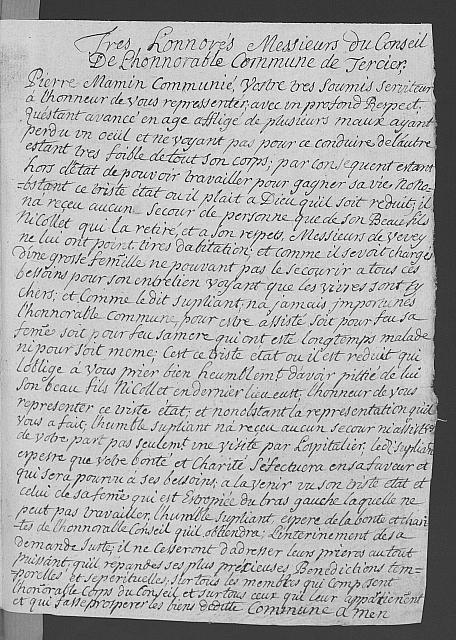 Tres Honnorés Messieurs du Conseil
De Lhonnorable Commune de Tercier,
Pierre Mamin Communié, Vostre tres soumis serviteur
à Lhonneur de vous repressenter, avec un profond Respect,
quéstant avancé en age affligé de plusieurs maux ayant
perdu un oeuil et ne voyant pas pour ce conduire de lautre
estant tres foible de tout son corps; par consequent estant
hors détat de pouvoir travailler pour gagner sa vie Nono-
-bstant ce triste état ou il plait à Dieu quil soit reduit; il
na reçu aucune secour de personne que de son Beau fils
Nicollet qui la retiré, et a son respect, Messieurs de Vevey
ne lui ont point tires dabitation; et comme il se voit chargés
dine grosse femeille ne pouvant pas le secourir a tous ces
besoins pour son entretien voyant que les vivres sont sy
chers; et Comme le dit supliant, nà jamais importunés
Lhonnorable Commune, pour estre assisté soit pour feu sa
feme soit pour feu sa mere qui ont esté longtemps malade
ni pour soit meme; Cest ce triste état ou il est reduit qui
loblige à vous prier bien heumblemt davoir pittié de lui
son beau fils Nicollet en dernier lieu eust, Lhonneur de vous
representer ce triste état, et nonobstant la representation quil
vous a fait, Lhumble supliant nà reçu aucun secour ni
de votre part pas seulemt une visite par Lospitalier, le dt supliant
espesre que votre bonté et Charité séfectuera en sa faveur et
qui sera pourvu à ses besoins; a la venir vu son triste état et
celui de sa feme qui est Estropiée du bras gauche laquelle ne
peut pas travailler, Lhumble supliant, espere de la bonte et chari-
tés de lhonnorable Conseil quil obtiendra; Lenterinement de sa
demande Juste; il ne Cesseront dadresser leur prieres au tout
puissant, quil repandes ses plus pretieuses Benedictions tem-
porelles et seperituelles, sur tous les membres qui composent
Lhonorable Corps du Conseil et sur tous ceux qui leur appartienent
et qui fasse prosperer les biens de ditte Commune Amen